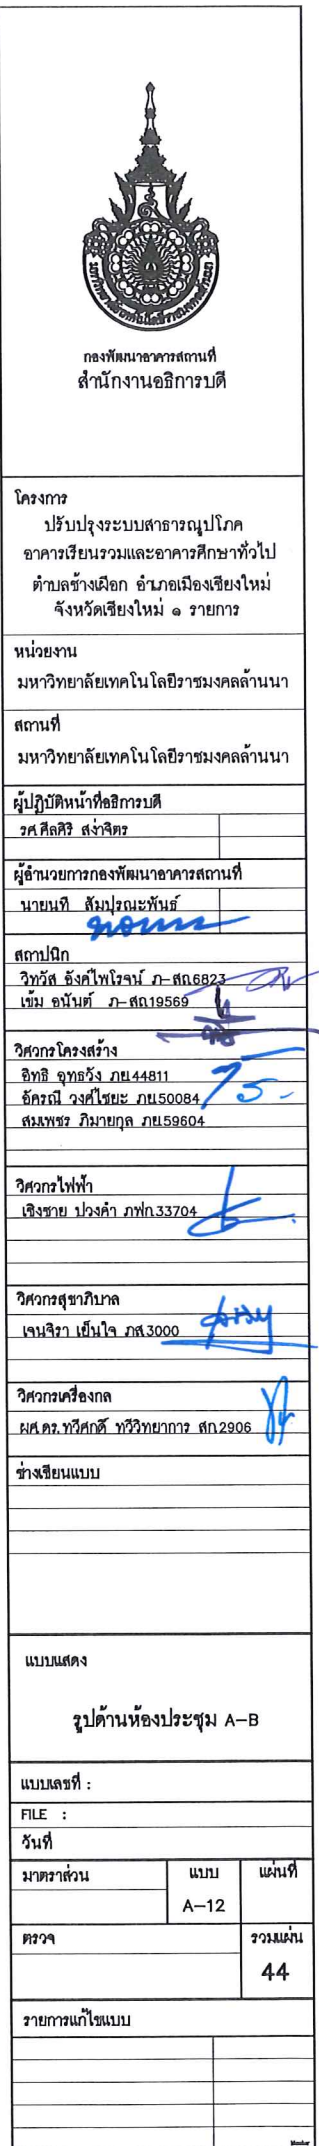 มหาวิทยาลัยเทคโนโลยีราชมงคลล้านนา
กองพัฒนาอาคารสถานที่
สำนักงานอธิการบดี
โครงการ
ปรับปรุงระบบสาธารณูปโภค
อาคารเรียนรวมและอาคารศึกษาทั่วไป
ตำบลช้างเผือก อำเภอเมืองเชียงใหม่
จังหวัดเชียงใหม่ ๑ รายการ
หน่วยงาน
มหาวิทยาลัยเทคโนโลยีราชมงคลล้านนา
สถานที่
มหาวิทยาลัยเทคโนโลยีราชมงคลล้านนา
ผู้ปฏิบัติหน้าที่อธิการบดี
รศ.ศีลศิริ สง่าจิตร
ผู้อำนวยการกองพัฒนาอาคารสถานที่
นายนที สัมปุรณะพันธ์
สถาปนิก
วิทวัส อังศ์ไพโรจน์ ภ-สถ.6823
เข้ม อนันต์ ภ-สถ.19569
วิศวกรโครงสร้าง
อิทธิ อุทธวัง ภย.44811
อัครณี วงศ์ไชยะ ภย.50084
สมเพชร ภิมายกุล ภย.59604
วิศวกรไฟฟ้า
เชิงชาย ปวงคำ ภฟก.33704
วิศวกรสุขาภิบาล
เจนจิรา เย็นใจ ภส.3000
วิศวกรเครื่องกล
ผศ.ดร.ทวีศกดิ์ ทวีวิทยาการ สก.2906
ช่างเขียนแบบ
แบบแสดง
รูปด้านห้องประชุม A-B
แบบเลขที่ :
FILE :
วันที่
มาตราส่วน แบบ แผ่นที่
A-12
ตรวจ รวมแผ่น
44
รายการแก้ไขแบบ